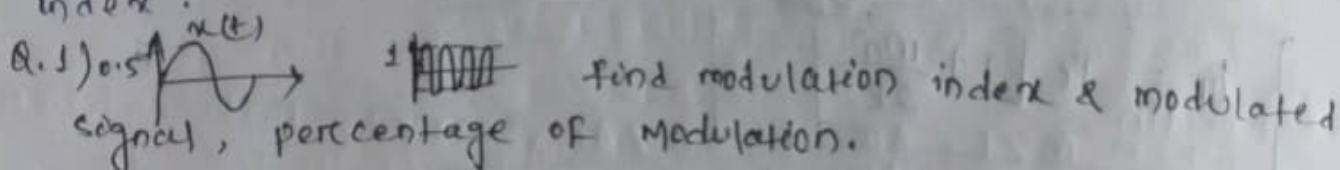 index.
Q.1) 0.5 x(t) 1 find modulation index & modulated
signal, percentage of Modulation.